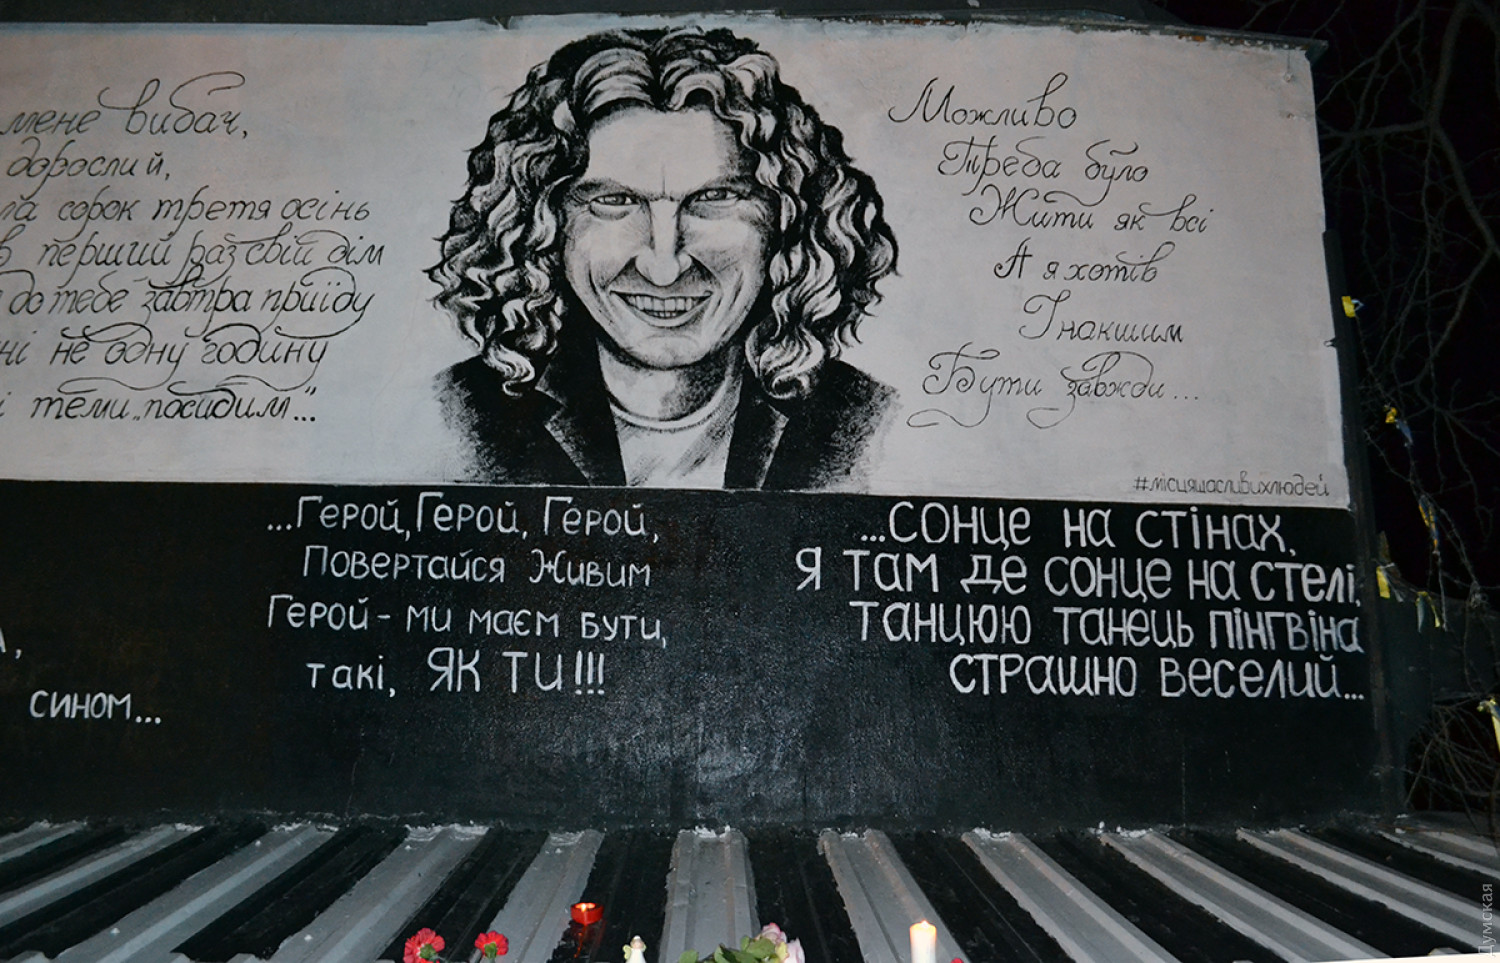 мене вибач,
дорослий,
ла сорок третя осінь
в перший раз свій дім
до тебе завтра приїду
ні не одну годину
і теми „посидим"...
Можливо
Треба було
Жити як всі
А я хотів
Інакшим
Бути завжди...
#місцящасливихлюдей
...Герой, Герой, Герой,
Повертайся Живим
Герой - ми маєм бути,
такі, ЯК ТИ!!!
...СОНЦЕ НА СТІНАХ,
Я ТАМ ДЕ СОНЦЕ НА СТЕЛІ,
ТАНЦЮЮ ТАНЕЦЬ ПІНГВІНА
СТРАШНО ВЕСЕЛИЙ...
А,
сином...
Думская